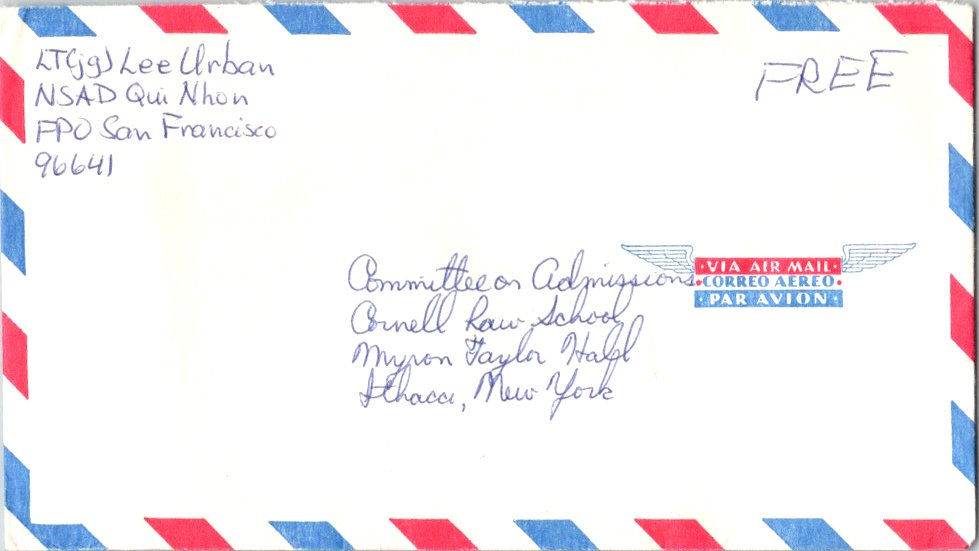 LT(jg) Lee Urban
NSAD Qui Nhon
FPO San Francisco
96641
FREE
Committee on Admissions
Cornell Law School
Myron Taylor Hall
Ithaca, New York
·VIA AIR MAIL·
·CORREO AEREO·
·PAR AVION·